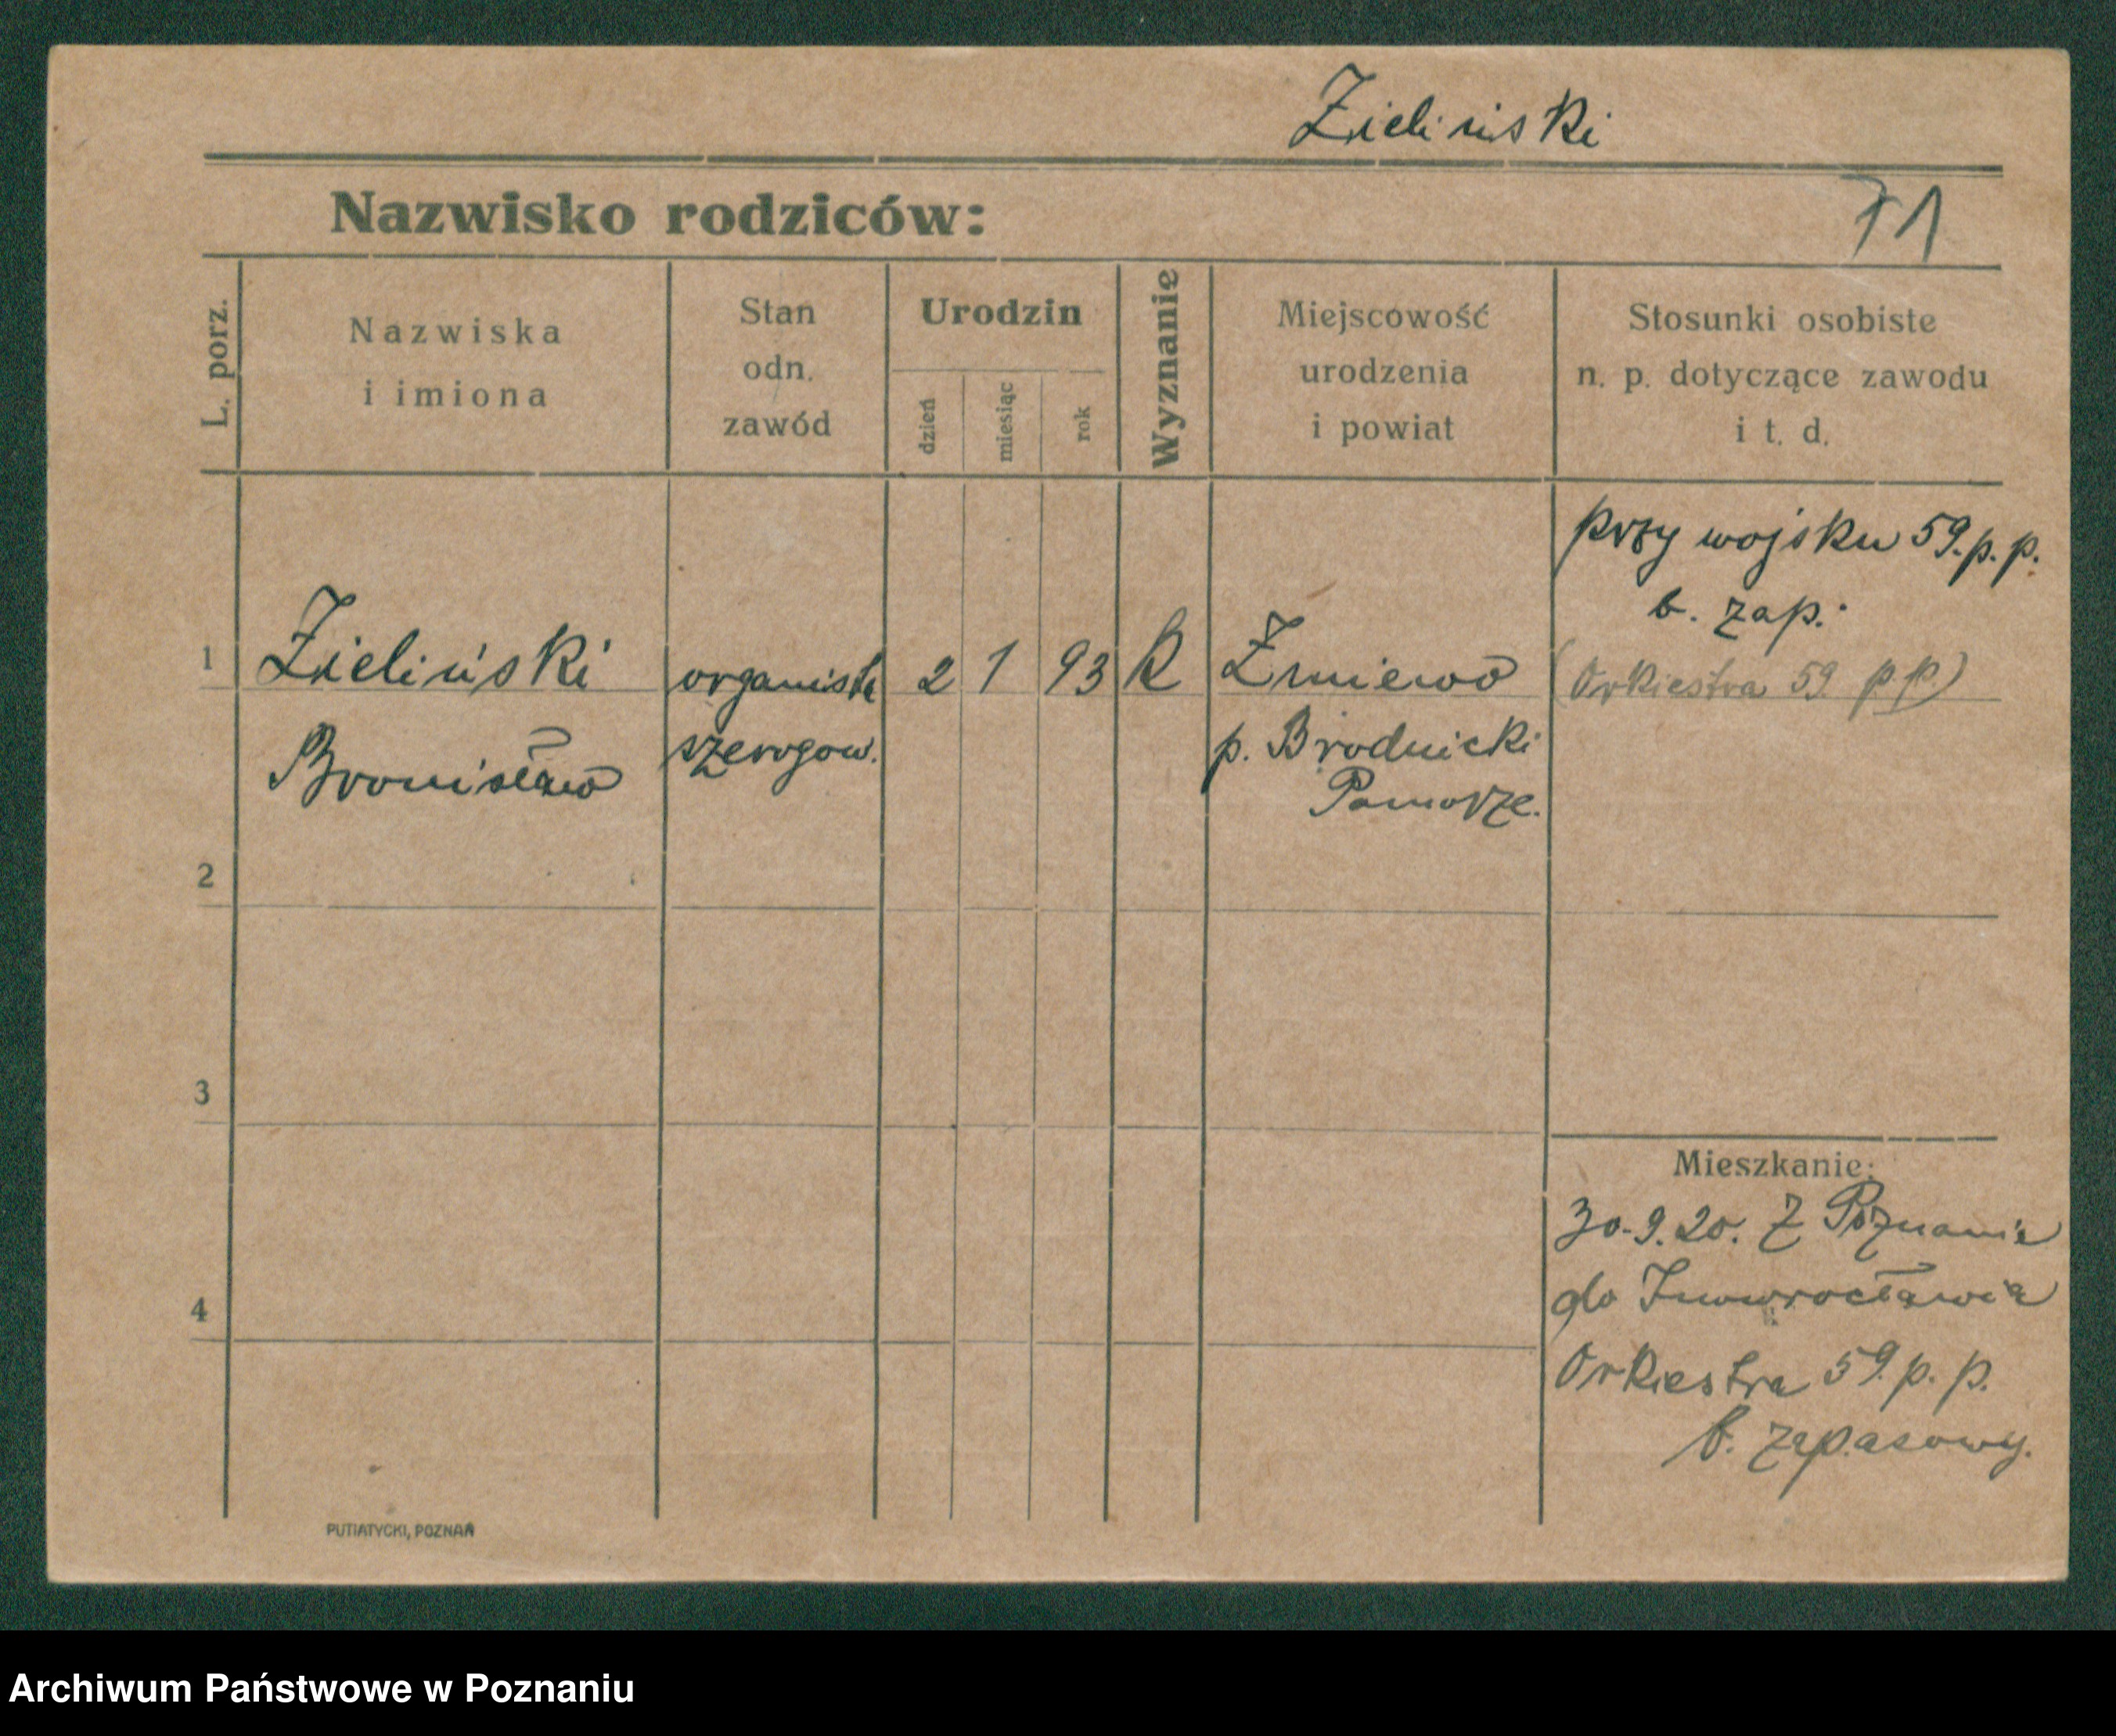 Zieliński
Nazwisko rodziców:
71
L. porz.
Nazwiska
i imiona
Stan
odn.
zawód
Urodzin
dzień
miesiąc
rok
Wyznanie
Miejscowość
urodzenia
i powiat
Stosunki osobiste
n. p. dotyczące zawodu
i t. d.
przy wojsku 59. p. p.
b. zap.
1 Zieliński organista 2 1 93 R Żmiewo (Orkiestra 59 p. p)
Bronisław szerogow. p. Brodnicki
Pomorze.
2
3
Mieszkanie:
30.9.20. Z Poznania
4
do Inowrocławia
Orkiestra 59. p. p.
b. zapasowy.
PUTIATYCKI, POZNAŃ
Archiwum Państwowe w Poznaniu